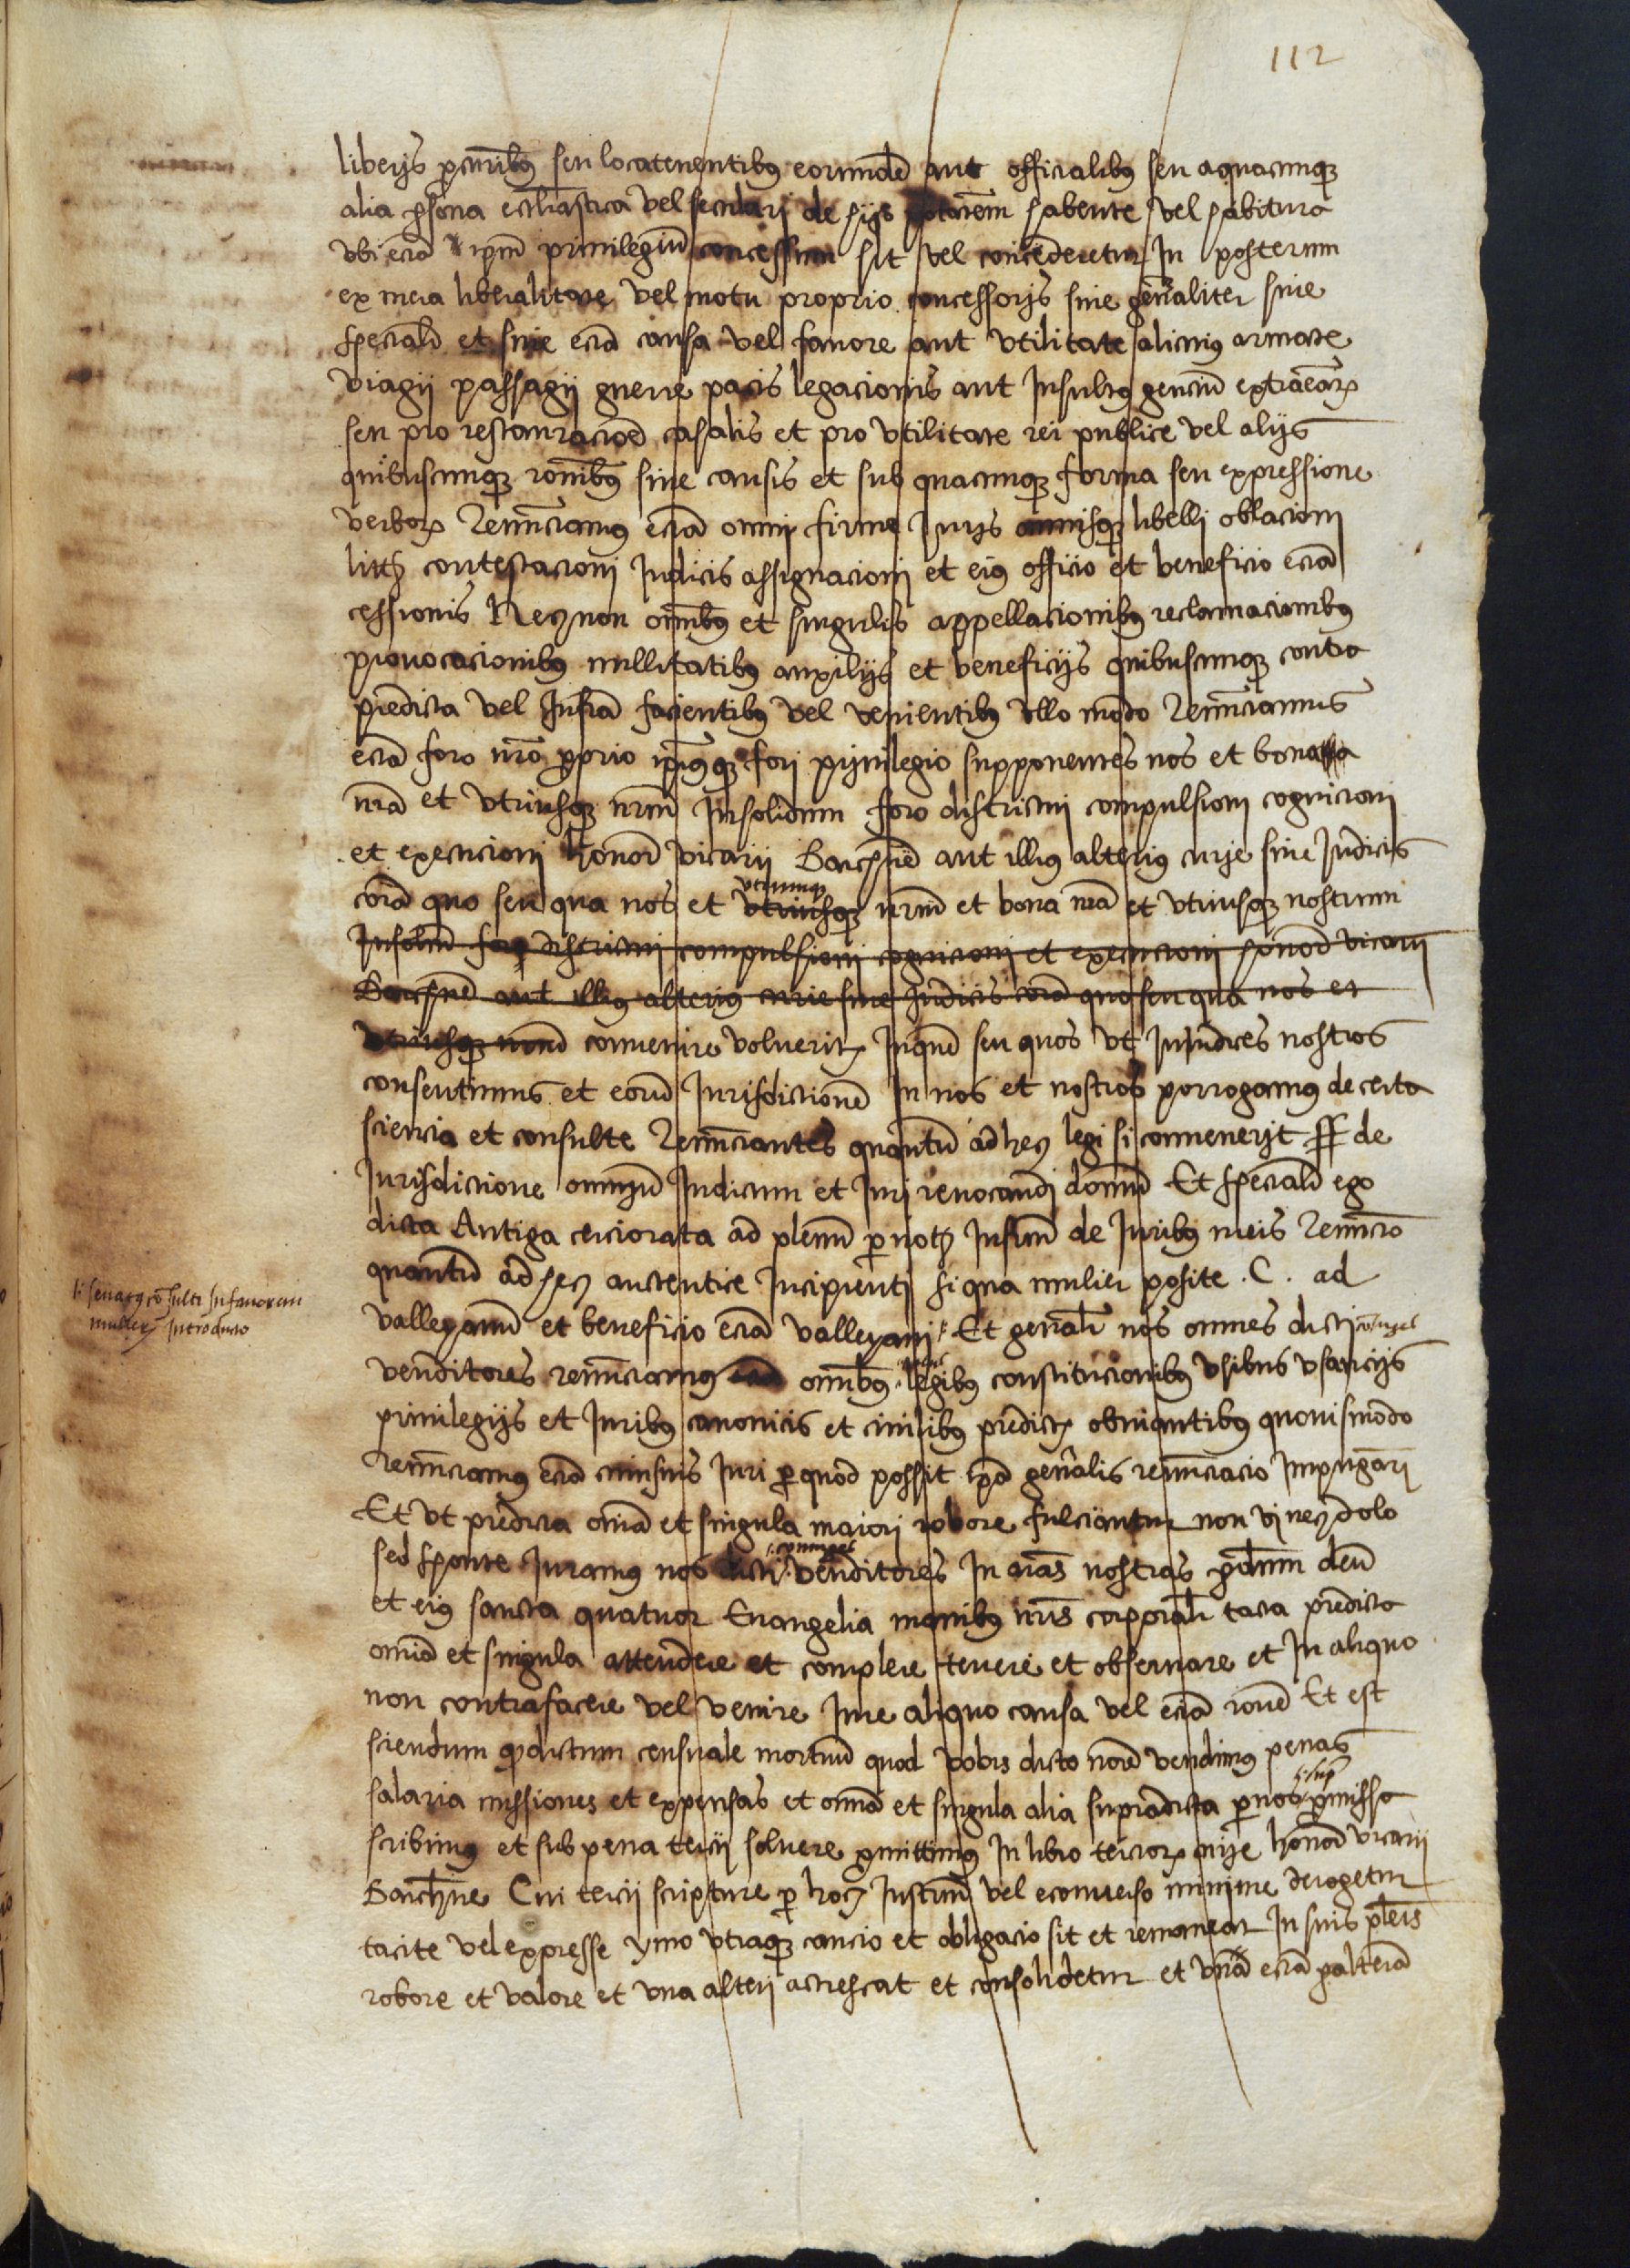 112
liberis pcuribus seu locatenentibus eorumdē aut officialibus seu aquacunque
alia psona eccliastica vel seculari de hijs potatem habente vel habitura
vbi eciā ipm priuilegiū concessum sit vel concēderetur In posterum
ex mera liberalitate vel motu proprio concessoris siue gēnaliter siue
specialr̄ et siue eciā causa vel fauore aut vtilitate alicuius armate
viagij passagij guerre pacis legacionis aut Insultus genciū extranear
seu pro restauracioē casalis et pro vtilitate rei publice vel alijs
quibuscunque ronibus siue causis et sub quacunque forma seu expressione
verbor Renūciamus eciā omni firme Juris omnisque libelli oblacioni
litis contestacioni Judicis assignacioni et eius officio et beneficio eciā
cessionis Necnon omībus et singulis appellacionibus reclamacionibus
prouocacionibus nullitatibus auxilijs et beneficijs quibuscunque contra
predicta vel Infrā facientibus vel venientibus vllo modo Renūciamus
eciā foro nro proprio ipiusque fori priuilegio supponentes nos et bona
nrā et vtriusque nrūm Insolidum foro districtui compulsioni cognicioni
et execucioni honor̄ vicarij Barchn̄e aut illius alterius curie siue Judicis
corā quo seu qua nos et vtriusque vtrumque nrūm et bona nrā et vtriusque nostrum
Insolm̄ foro districtui compulsioni cognicioni et execucioni honor̄ vicarij
Barchn̄e aut illius alterius curie siue Judicis corā quo seu qua nos et
vtriusque nrm̄ conuenire volueritis Inquē seu quos vt InJudices nostros
consentimus et eorū Jurisdictionē In nos et nostros porrogamus de certa
sciencia et consulte Renūciantes quantū ad hec legi si conuenerit ff de
Jurisdictione omniū Judicum et Juri reuocandi domū Et specialr̄ ego
dicta Antiga cerciorata ad plenū per not Infrm̄ de Juribus meis Renūcio
quantū ad hec autentice Incipienti si qua mulier posite . C . ad
velleyanū et beneficio eciā velleyani Et genalr̄ nos omnes dicti coniuges
/: senatus cōsulti Infauorem
mulier Introducto
venditores renūciamus omībus legibus constitucionibus vsibus vsancijs
priuilegijs et Juribus canonicis et ciuilibus predictis obuiantibus quouismodo
Renūciamus eciā cuiusuis Juri per quod possit ipā genalis renūciacio Impugnari
Et vt predicta omiā et singula maiori robore fulciantur non vi nec dolo
sed sponte Juramus nos dicti /: coniuges venditores In aīas nostras p dnm̄ deū
et eius sancta quatuor Euangelia manibus nris corporalr̄ tacta predicta
omiā et singula attendere et complere tenere et obseruare et In aliquo
non contrafacere vel venire Jure aliquo causa vel eciā ronē Et est
sciendum qd dictum censuale mortuū quod vobis dicto noīe vendimus penas
salaria missiones et expensas et omiā et singula alia supradicta per nos /: sup pmissa
scribimus et sub pena tercij soluere pmittimus In libro tercior curie honor̄ vicarij
Barchn̄e Cui tercij scripture per hoc Instrm̄ vel econuerso minime derogetur
tacite vel expresse ymo vtraque caucio et obligacio sit et remaneat In suis plenis
robore et valore et vna alteri acrescat et consolidetur et vnā eciā p alterā